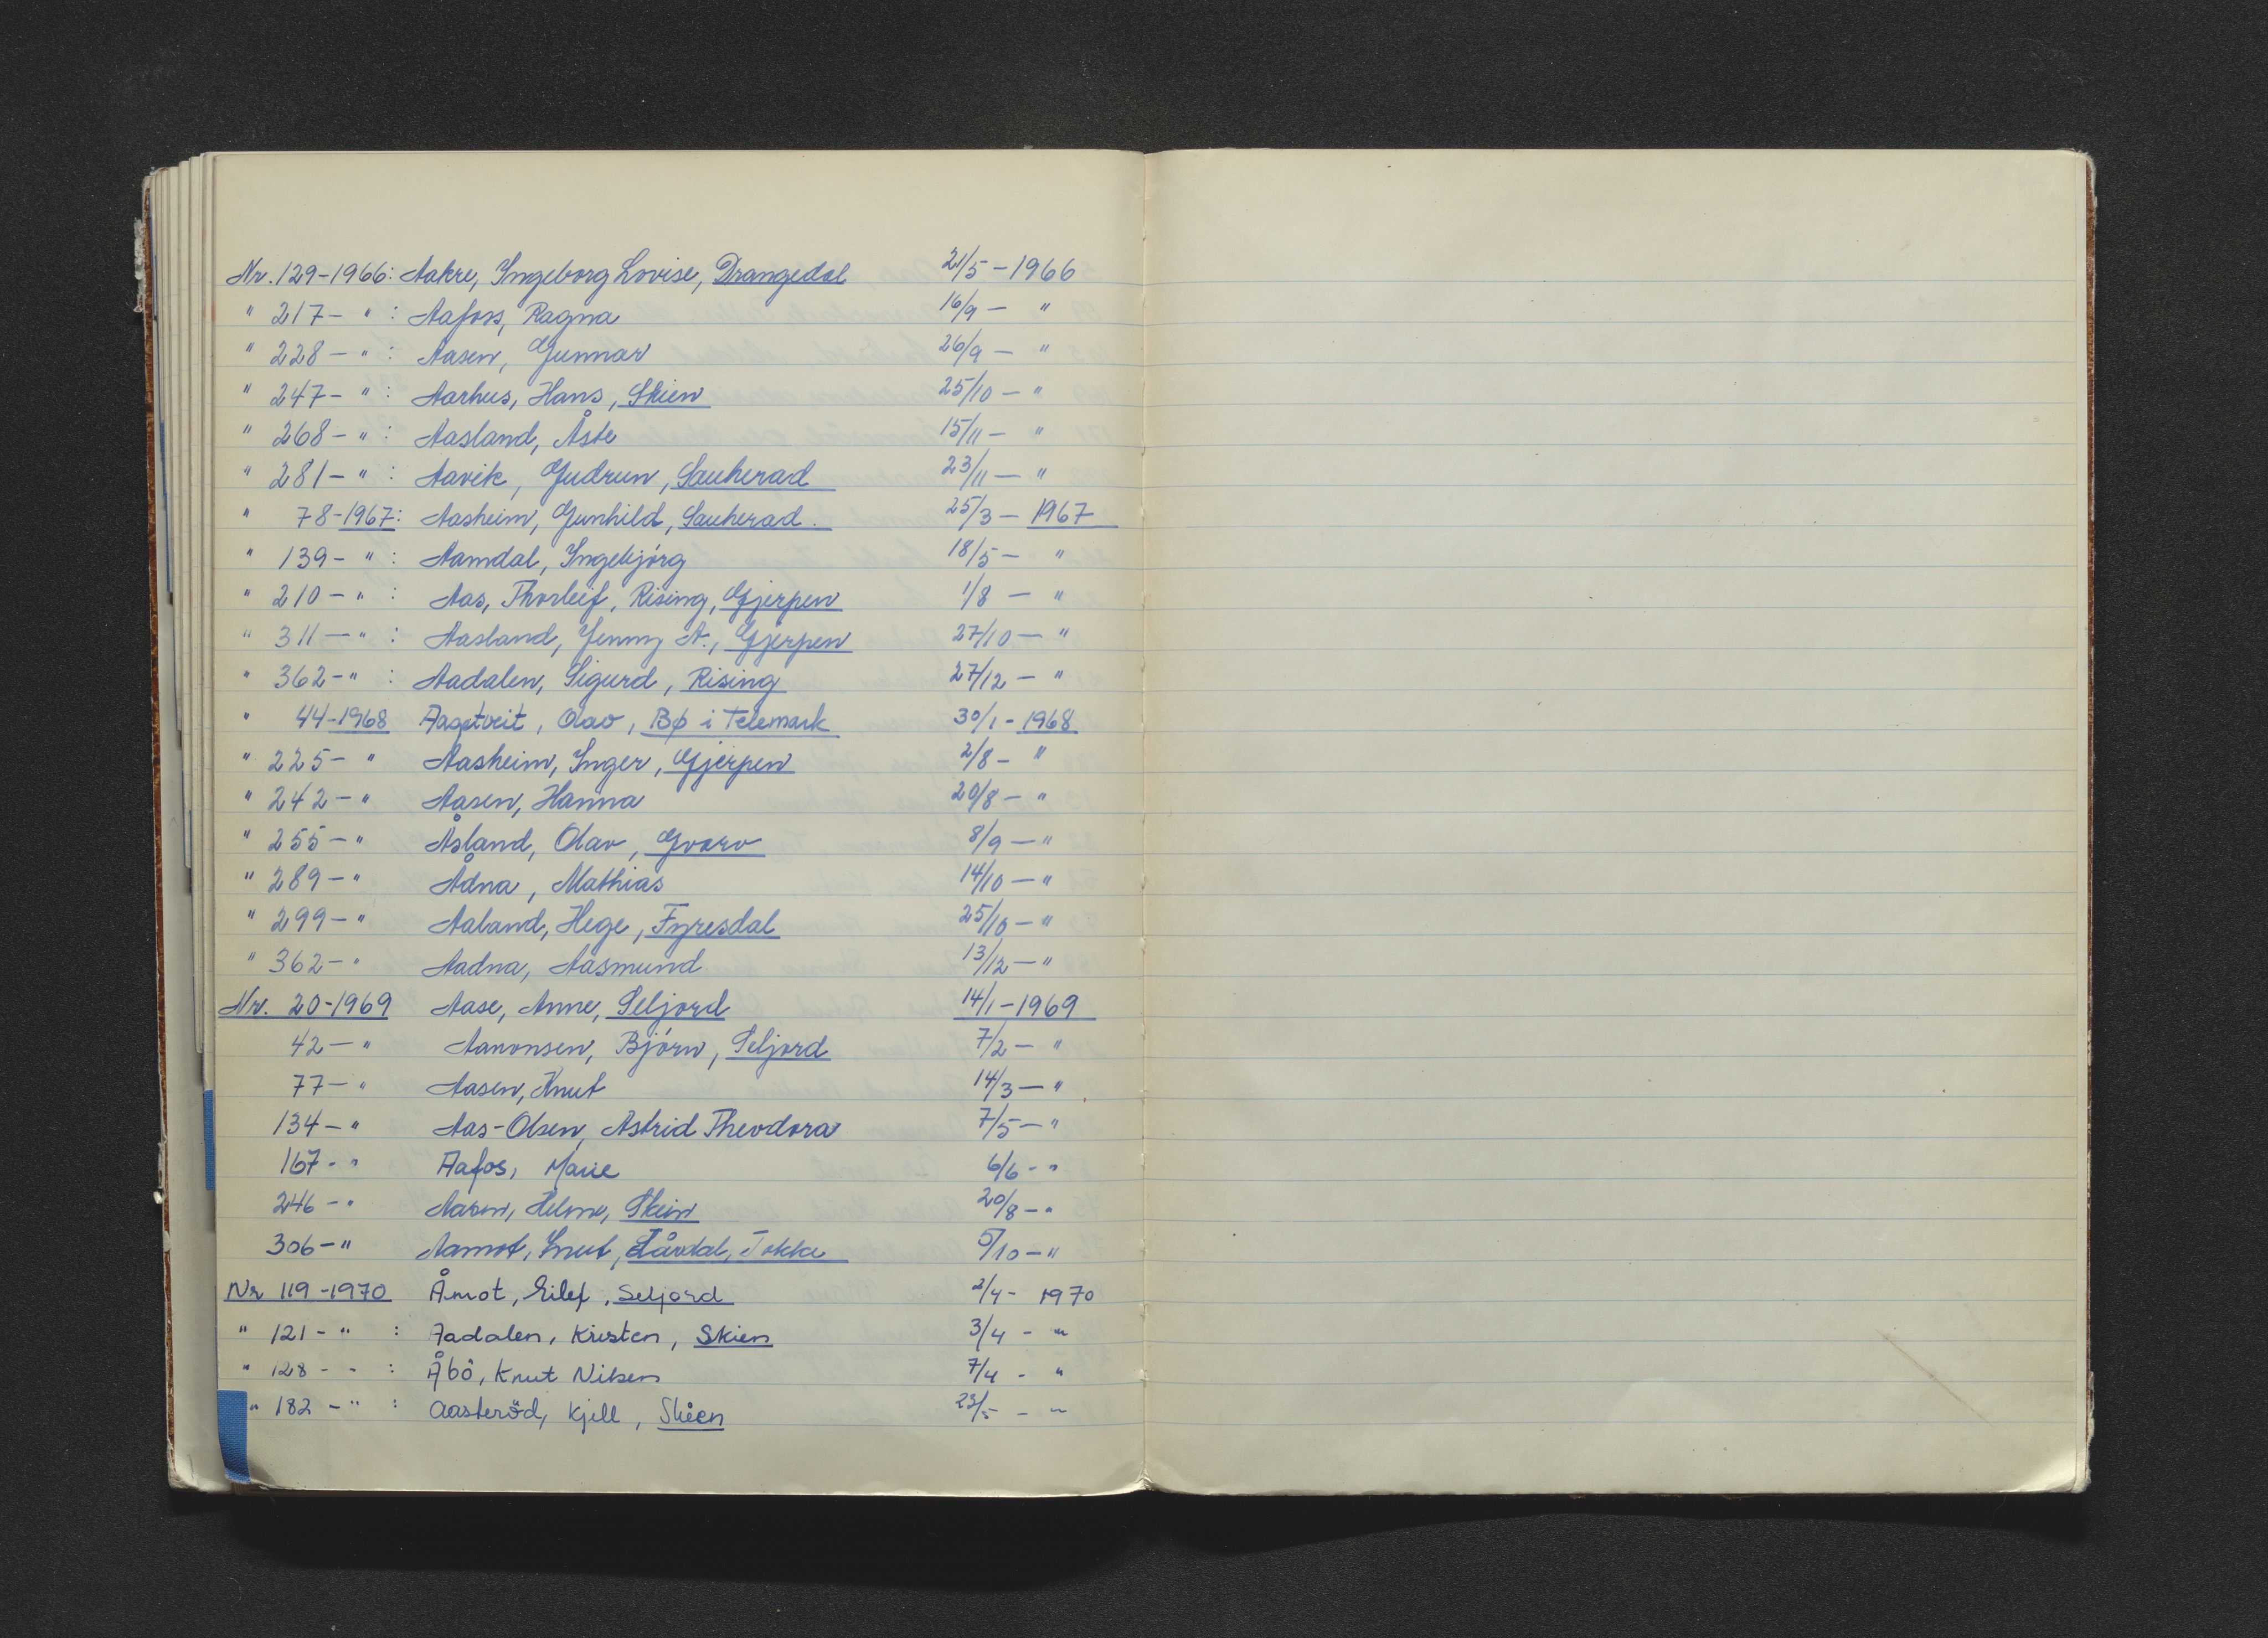 Nr. 129-1966: Aakre, Ingeborg Lovise, Drangedal 21/5 - 1966
" 217 - " : Aafoss, Ragna 16/9 - "
" 228 - " : Aasen, Gunnar 26/9 - "
" 247 - " : Aarhus, Hans, Skien 25/10 - "
" 268 - " : Aasland, Åste 15/11 - "
" 281 - " : Aavik, Gudrun, Sauherad 23/11 - "
" 78-1967: Aasheim, Gunhild, Sauherad. 25/3 - 1967
" 139 - " : Aamdal, Ingebjórg 18/5 - "
" 210 - " : Aas, Thorleif, Rising, Gjerpen 1/8 - "
" 311 - " : Aasland, Jenny A., Gjerpen 27/10 - "
" 362 - " : Aadalen, Sigurd, Rising 27/12 - "
" 44-1968 Aagetveit, Olav, Bø i Telemark 30/1 - 1968
" 225 - " Aasheim, Inger, Gjerpen 2/8 - "
" 242 - " Aasen, Hanna 20/8 - "
" 255 - " Åsland, Olav, Gvarv 8/9 - "
" 289 - " Ådna, Mathias 14/10 - "
" 299 - " Aaland, Hege, Fyresdal 25/10 - "
" 362 - " Aadna, Aasmund 13/12 - "
Nr. 20-1969 Aase, Anne, Seljord 14/1 - 1969
42 - " Aanonsen, Bjórn, Seljord 7/2 - "
77 - " Aasen, Knut 14/3 - "
134 - " Aas-Olsen, Astrid Theodora 7/5 - "
167 - " Aafos, Marie 6/6 - "
246 - " Aasen, Helene, Skien 20/8 - "
306 - " Aamot, Knut, Lårdal, Tokke 5/10 - "
Nr 119-1970 Åmot, Eilef, Seljord 2/4 - 1970
" 121 - " : Aadalen, Kristen, Skien 3/4 - "
" 128 - " : Åbö, Knut Nilsen 7/4 - "
" 182 - " : Aasteröd, Kjell, Skien 23/5 - "